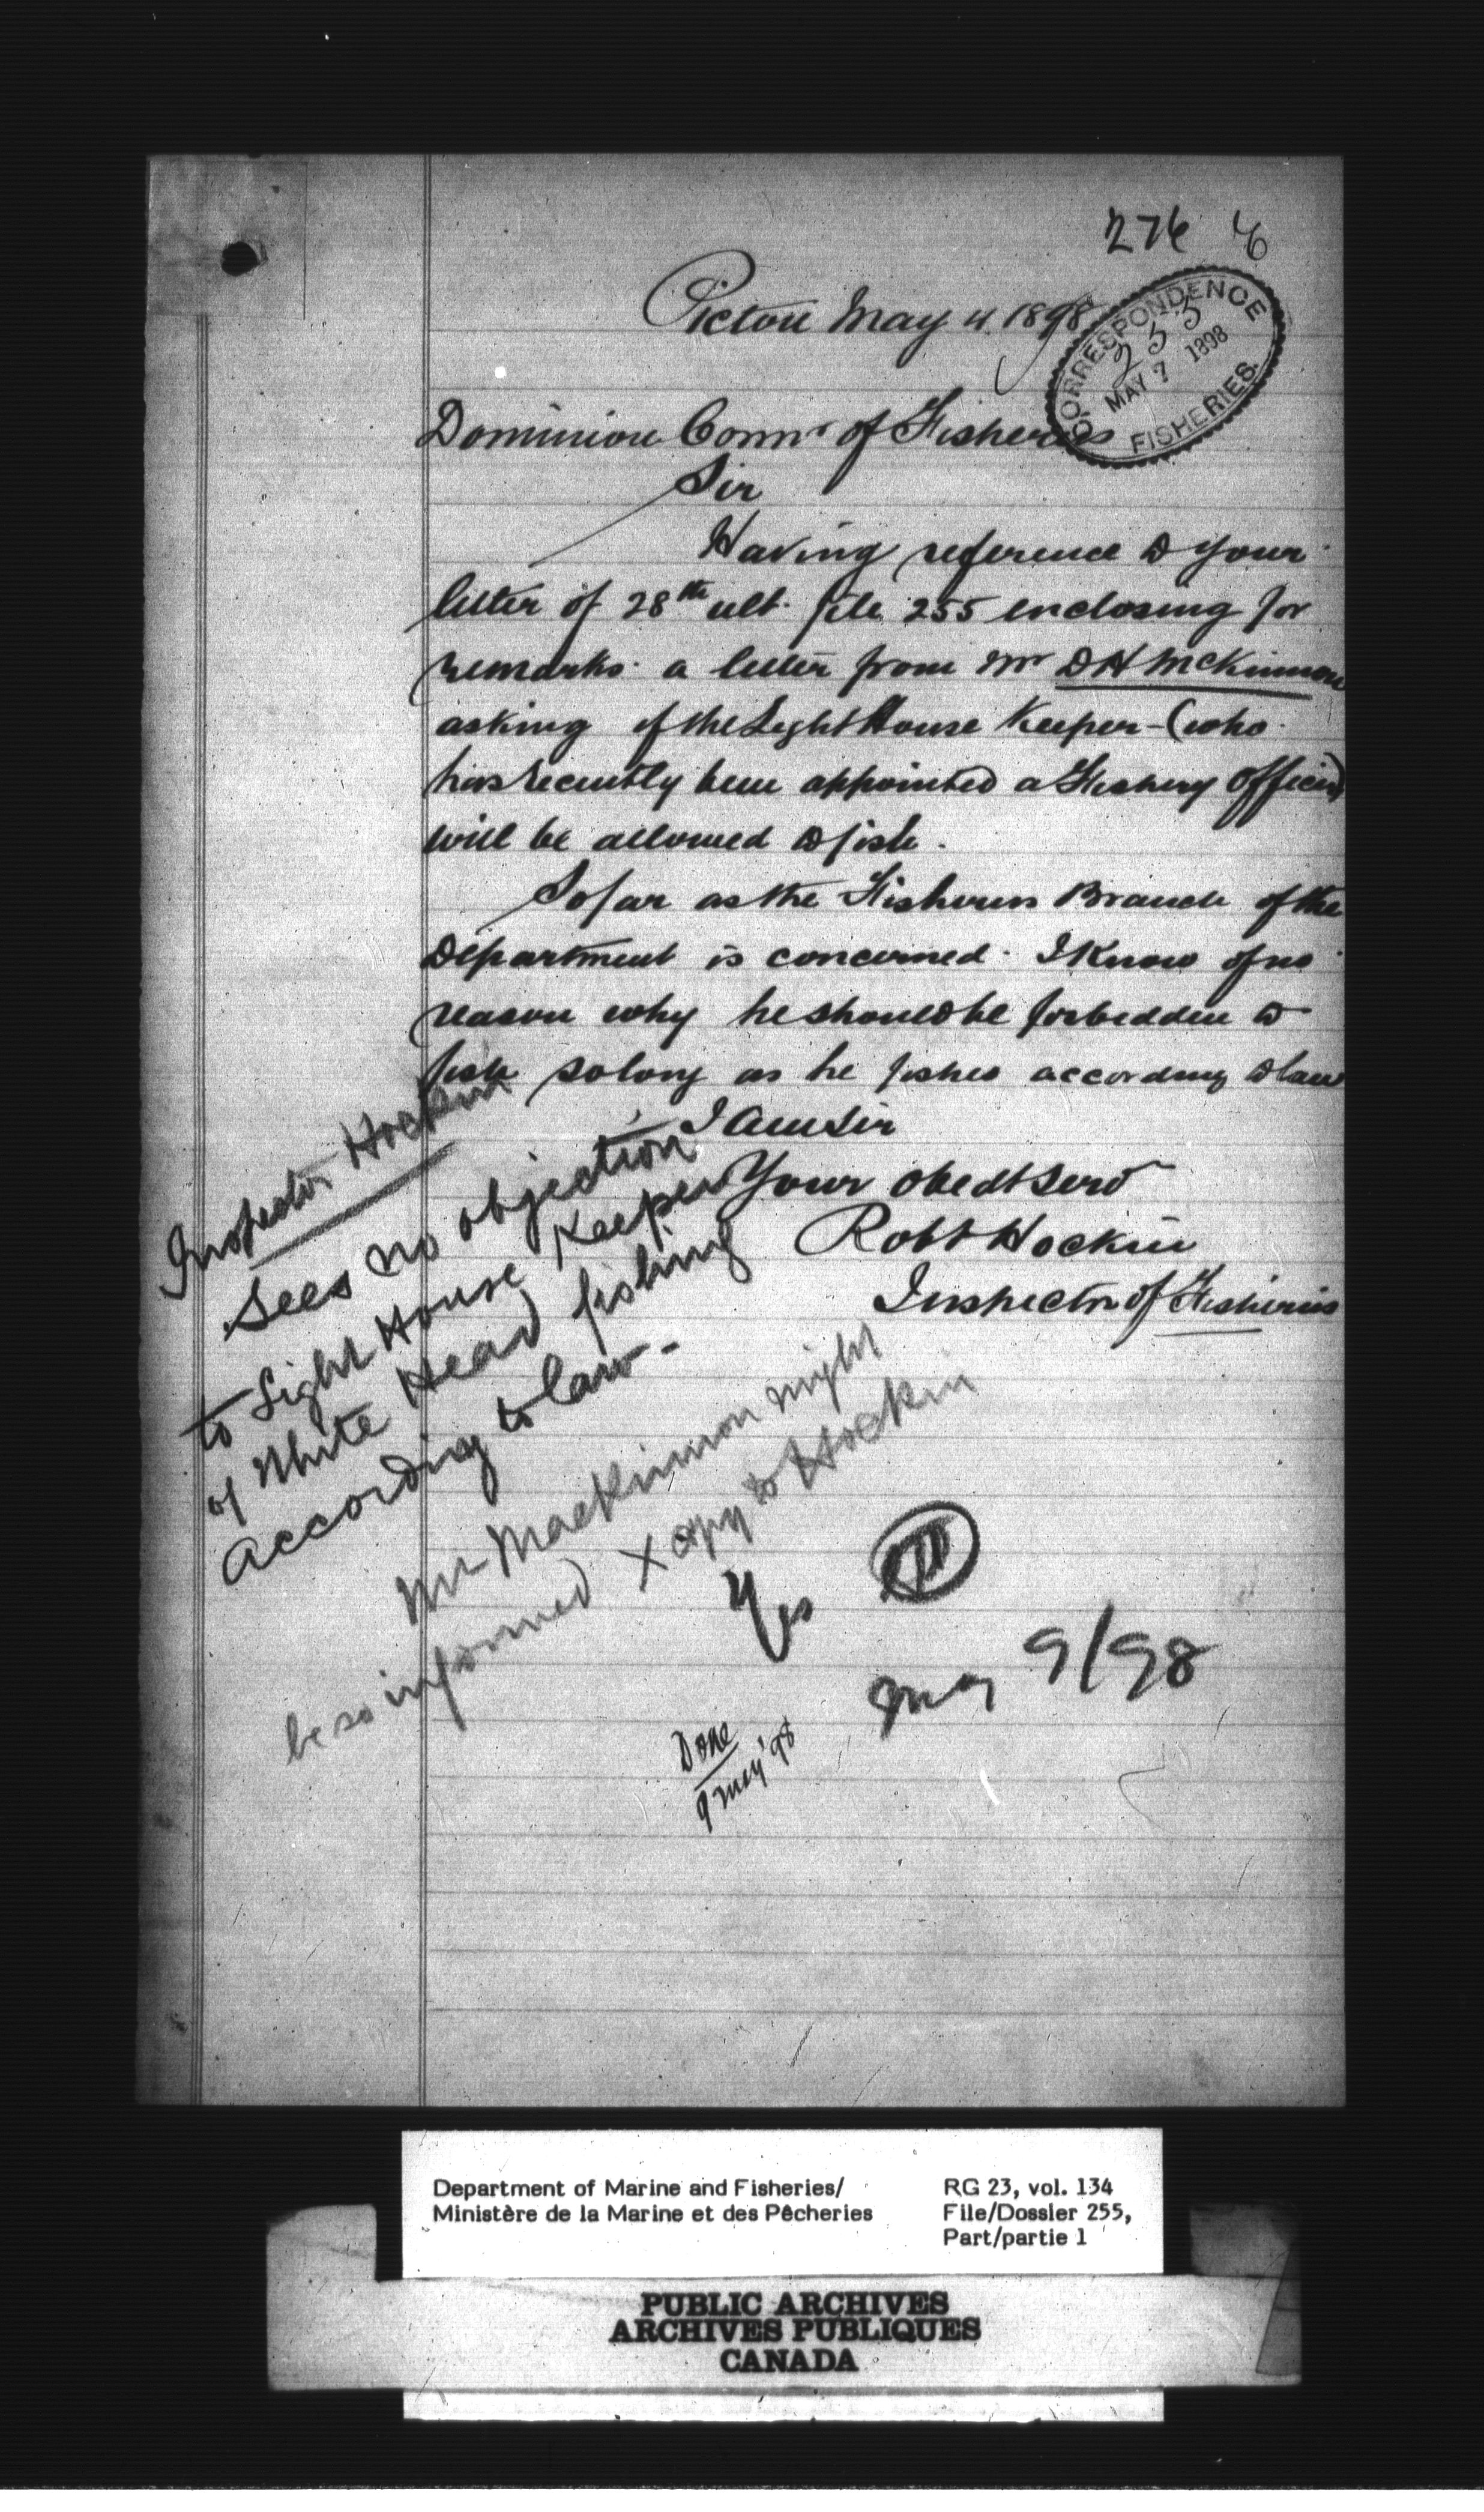 276
Pictou May 4 1898
CORRESPONDENCE
255
MAY 7 1898
FISHERIES.
Dominion Comr of Fisheries
Sir
Having reference to your
letter of 28th ult. file 255 enclosing for
remarks a letter from Mr D H McKinnon
asking if the Light House Keeper - (who
has recently been appointed a Fishery Officer)
will be allowed to fish.
So far as the Fisheries Branch of the
Department is concerned I know of no
reason why he should be forbidden to
fish so long as he fishes according to law
I am Sir
Your obedt Servt
Robt Hockin
Inspector of Fisheries
Inspector Hockin
sees no objection
to Light House Keeper
of White Head fishing
according to law -
Mr MacKinnon might
be so informed x copy to Hockin
Yes
May 9/98
Done
9 May '98
Department of Marine and Fisheries/
Ministère de la Marine et des Pêcheries
RG 23, vol. 134
File/Dossier 255,
Part/partie 1
PUBLIC ARCHIVES
ARCHIVES PUBLIQUES
CANADA